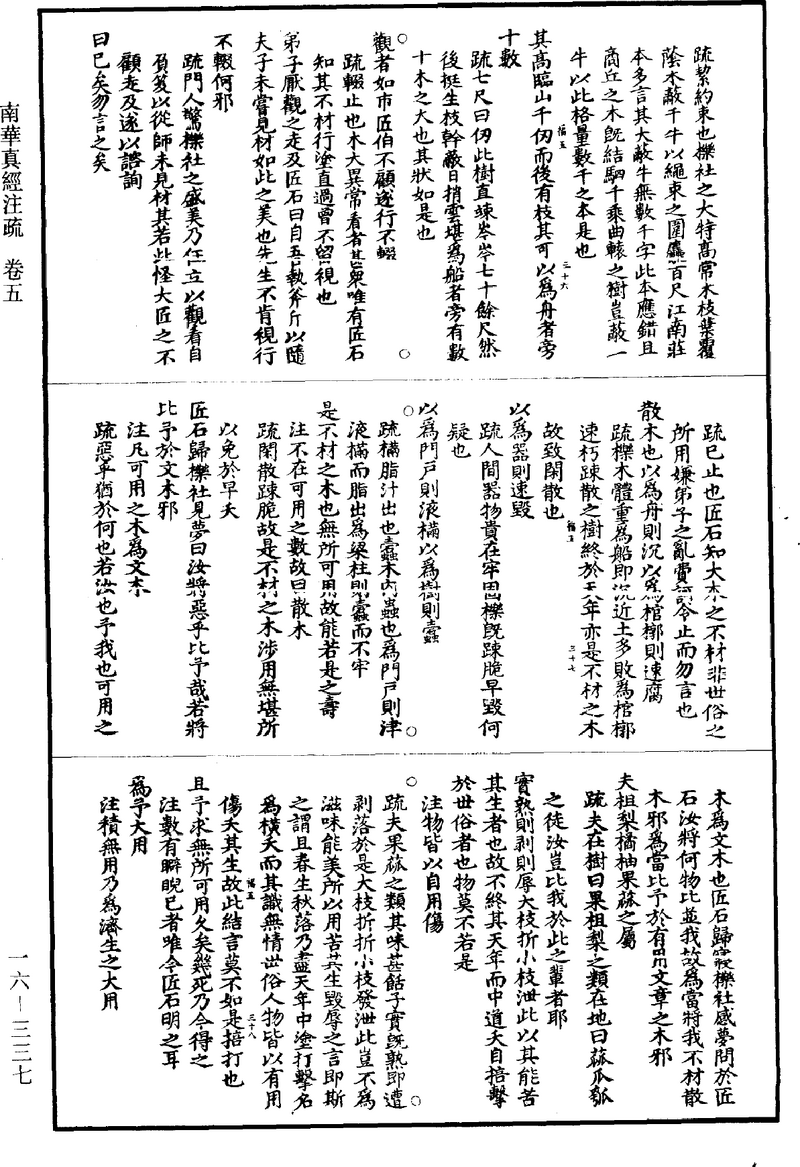 疏絜約束也櫟社之大特高常木枝葉覆
蔭木蔽千牛以繩束之圍麤百尺江南莊
本多言其大蔽牛無數千字此本應錯且
商丘之木旣結駟千乘曲轅之樹豈蔽一
牛以此格量數千之本是也
其高臨山千仞而後有枝其可以爲舟者旁
十數
疏七尺曰仞此樹直竦岑岑七十餘尺然
後挺生枝幹蔽日捎雲堪爲船者旁有數
十木之大也其狀如是也
觀者如市匠伯不顧遂行不輟
疏輟止也木大異常看者甚衆唯有匠石
知其不材行塗直過曾不留視也
弟子厭觀之走及匠石曰自吾執斧斤以隨
夫子未嘗見材如此之美也先生不肯視行
不輟何邪
疏門人驚櫟社之盛美乃住立以觀看自
負笈以從師未見材其若此怪大匠之不
顧走及遂以諮詢
曰已矣勿言之矣
疏已止也匠石知大木之不材非世俗之
所用嫌弟子之亂費詞令止而勿言也
散木也以爲舟則沉以爲棺槨則速腐
疏櫟木體重爲船即沉近土多敗爲棺槨
速朽疎散之樹終於天年亦是不材之木
故致閑散也
以爲器則速毀
疏人間器物貴在牢固櫟旣疎脆早毀何
疑也
以爲門戸則液樠以爲樹則蠹
疏樠脂汁出也蠹木內蟲也爲門戸則津
液樠而脂出爲梁柱則蠹而不牢
是不材之木也無所可用故能若是之壽
注不在可用之數故曰散木
疏閑散疎脆故是不材之木涉用無堪所
以免於早夭
匠石歸櫟社見夢曰汝將惡乎比予哉若將
比予於文木邪
注凡可用之木爲文木
疏惡乎猶於何也若汝也予我也可用之
木爲文木也匠石歸寢櫟社感夢問於匠
石汝將何物比並我故爲當將我不材散
木邪爲當比予於有用文章之木邪
夫柤梨橘柚果蓏之屬
疏夫在樹曰果柤梨之類在地曰蓏瓜瓠
之徒汝豈比我於此之輩者耶
實熟則剥則辱大枝折小枝泄此以其能苦
其生者也故不終其天年而中道夭自掊擊
於世俗者也物莫不若是
注物皆以自用傷
疏夫果蓏之類其味甚餂子實旣熟即遭
剥落於是大枝折折小枝發泄此豈不爲
滋味能美所以用苦其生毀辱之言即斯
之謂且春生秋落乃盡天年中塗打擊名
爲橫夭而其識無情世俗人物皆以有用
傷夭其生故此結言莫不如是掊打也
且予求無所可用久矣幾死乃今得之
注數有睥睨已者唯今匠石明之耳
爲予大用
注積無用乃爲濟生之大用
福五
三十六
福五
三十七
福五
三十八
南華真經注疏 卷五
一六—三三七